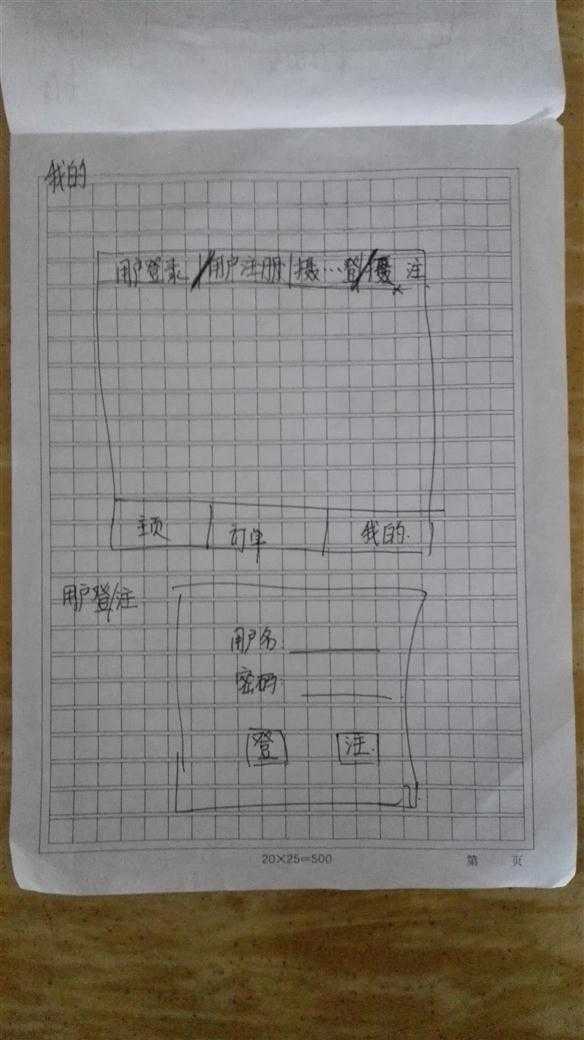 我的
用户登录/用户注册|摄…登/摄 注
主页 订单 我的
用户登/注
用户名:
密码:
登 注
20×25=500 第 页